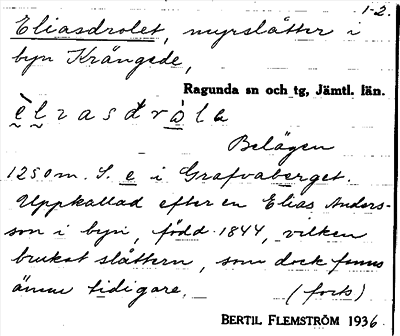 1-2.
Eliasdrolet, myrslåtter i
byn Krångede,
Ragunda sn och tg, Jämtl. län.
Belägen
1250 m. S. e i Grafvaberget.
Uppkallad efter en Elias Anders-
son i byn, född 1844, vilken
brukat slåttern, som dock funns
ännu tidigare. (forts)
BERTIL FLEMSTRÖM 1936.